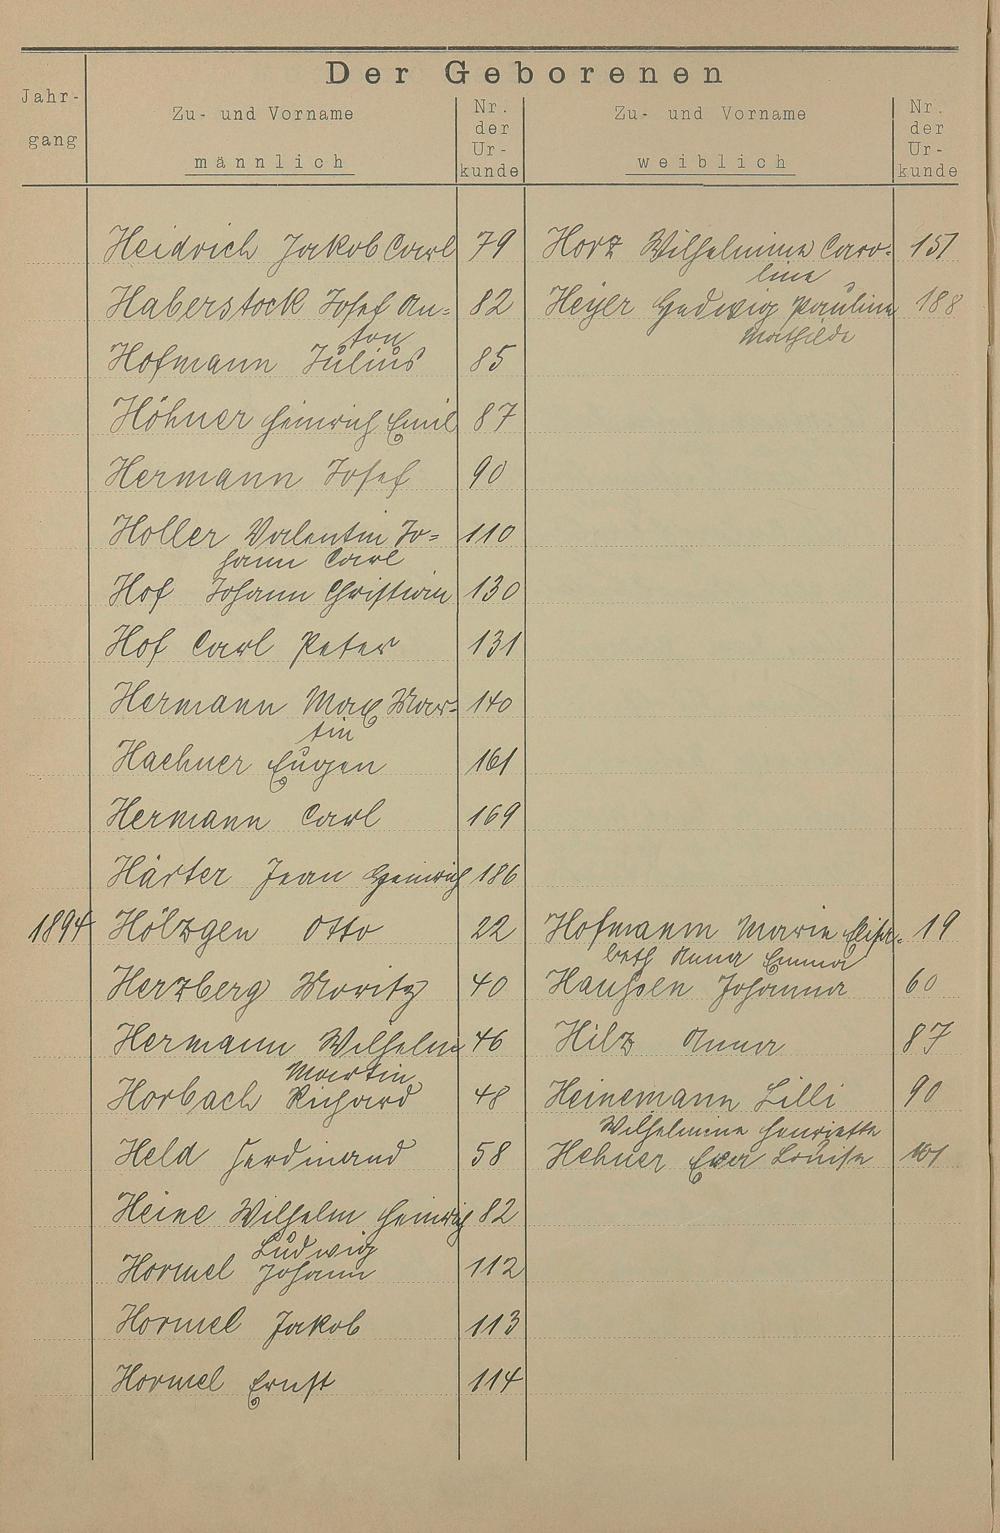 Der Geborenen
Jahr-
gang
Zu- und Vorname
männlich
Nr.
der
Ur-
kunde
Zu- und Vorname
weiblich
Nr.
der
Ur-
kunde
Heidrich Jakob Carl 79 Horz Wilhelmine Caro- 151
line
Haberstock Josef An= 82 Heyer Hedwig Pauline 188
ton Mathilde
Hofmann Julius 85
Höhner Heinrich Emil 87
Hermann Josef 90
Holler Valentin Jo= 110
hann Carl
Hof Johann Christian 130
Hof Carl Peter 131
Hermann Max Mar- 140
tin
Haehner Eugen 161
Hermann Carl 169
Härter Jean Heinrich 186
1894 Hölzgen Otto 22 Hofmann Marie Elisa- 19
beth Anna Emma
Herzberg Moritz 40 Haussen Johanna 60
Hermann Wilhelm 46 Hilz Anna 87
Martin
Horbach Richard 48 Heinemann Lilli 90
Wilhelmine Henriette
Held Ferdinand 58 Hehner Eva Louise 101
Heine Wilhelm Heinrich 82
Ludwig
Hormel Johann 112
Hormel Jakob 113
Hormel Ernst 114